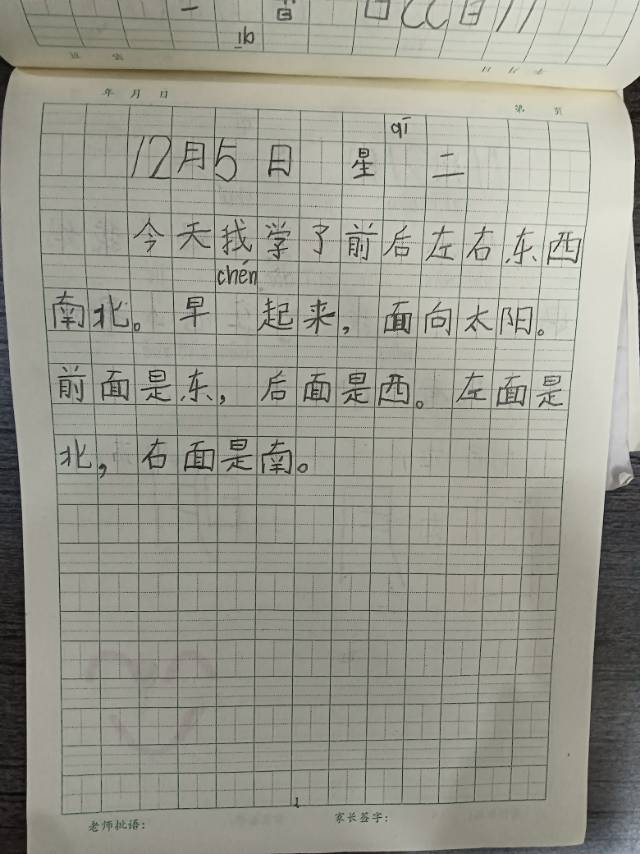 年 月 日 第 页
qī
12月5日 星 二
今天找学了前后左右东西
chén
南北。早 起来，面向太阳。
前面是东，后面是西。左面是
北，右面是南。
老师批语： 家长签字：